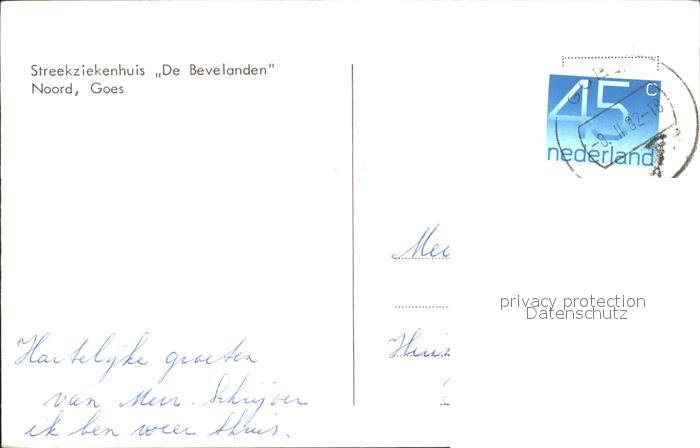 Streekziekenhuis „De Bevelanden"
Noord, Goes
45 c
nederland
-9. II. 82-18
privacy protection
Datenschutz
Hartelijke groeten
van Mevr. Schrijver
ik ben weer thuis.